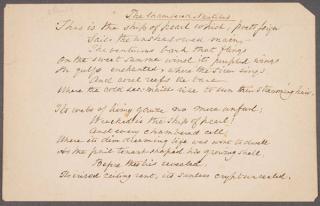 The Chambered Nautilus.
This is the ship of pearl which, poets feign
Sails the unshadowed main,
The venturous bark that flings
On the sweet summer wind its purpled wings
In gulfs enchanted, where the Siren sings
And coral reefs lie bare,
Where the cold sea-maids rise to sun their streaming hair.
Its webs of living gauze no more unfurl;
Wrecked is the ship of pearl!
And every chambered cell
Where its dim dreaming life was wont to dwell
As the frail tenant shaped his growing shell
Before thee lies revealed,
Its irised ceiling rent, its sunless crypt unsealed.